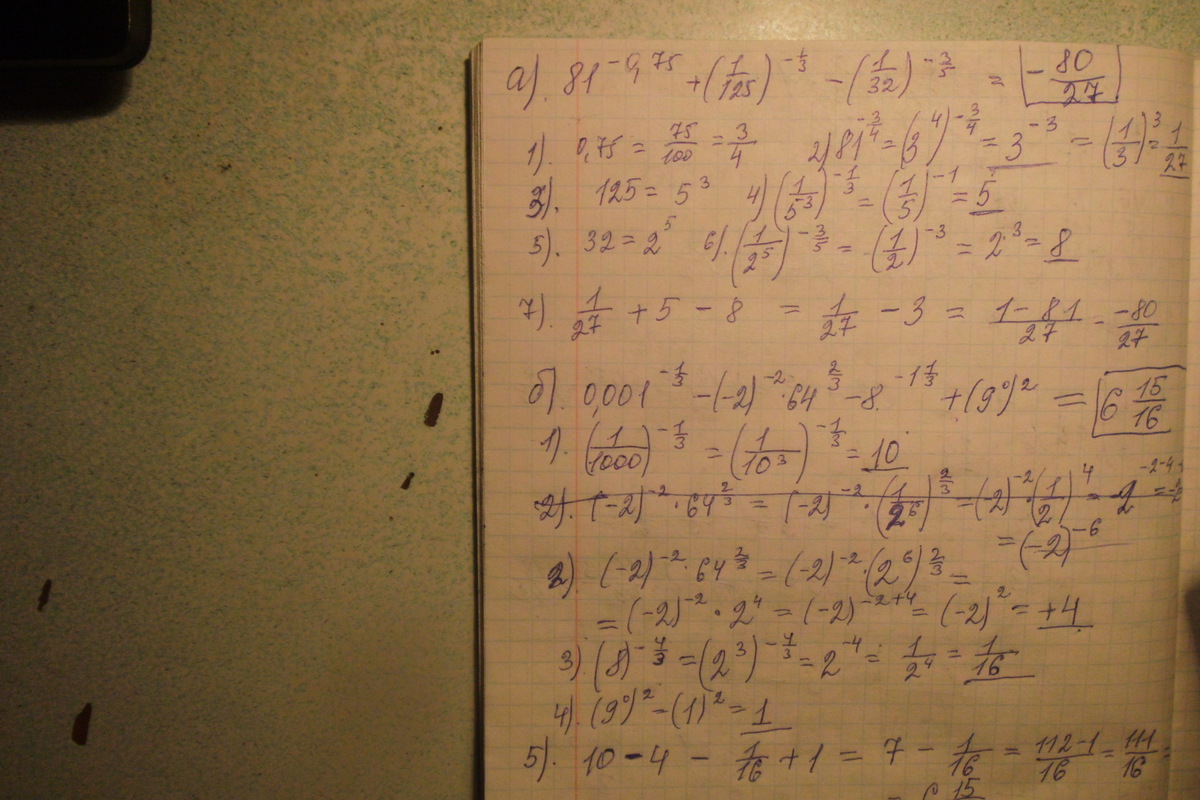 а). 81^(-0,75) + (1/125)^(-1/3) - (1/32)^(-3/5) = -80/27
1). 0,75 = 75/100 = 3/4 2) 81^(-3/4) = (3^4)^(-3/4) = 3^(-3) = (1/3)^3 = 1/27
3). 125 = 5^3 4) (1/5^3)^(-1/3) = (1/5)^(-1) = 5
5). 32 = 2^5 6). (1/2^5)^(-3/5) = (1/2)^(-3) = 2^3 = 8
7). 1/27 + 5 - 8 = 1/27 - 3 = (1-81)/27 - -80/27
б). 0,001^(-1/3) - (-2)^(-2) · 64^(2/3) - 8^(-1 1/3) + (9^0)^2 = 6 15/16
1). (1/1000)^(-1/3) = (1/10^3)^(-1/3) = 10
2). (-2)^(-2) · 64^(2/3) = (-2)^(-2) · (1/2^6)^(2/3) = (-2)^(-2) · (1/2)^4 = 2^(-2-4
= (-2)^(-6)
2) (-2)^(-2) · 64^(2/3) = (-2)^(-2) · (2^6)^(2/3) =
= (-2)^(-2) · 2^4 = (-2)^(-2+4) = (-2)^2 = +4
3) (8)^(-4/3) = (2^3)^(-4/3) = 2^(-4) = 1/2^4 = 1/16
4). (9^0)^2 = (1)^2 = 1
5). 10 - 4 - 1/16 + 1 = 7 - 1/16 = (112-1)/16 = 111/16 =
= 6 15